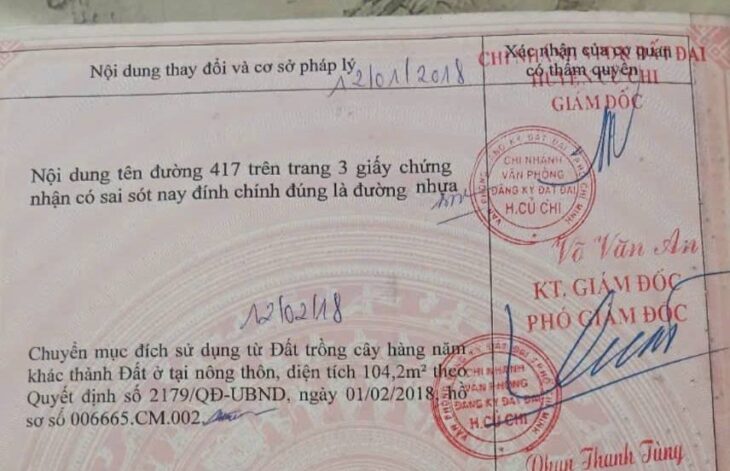 Nội dung thay đổi và cơ sở pháp lý
Xác nhận của cơ quan
có thẩm quyền
12/01/2018
CHI NHÁNH VPĐK ĐẤT ĐAI
HUYỆN CỦ CHI
GIÁM ĐỐC
Nội dung tên đường 417 trên trang 3 giấy chứng
nhận có sai sót nay đính chính đúng là đường nhựa
VĂN PHÒNG ĐĂNG KÝ ĐẤT ĐAI TP.HỒ CHÍ MINH
CHI NHÁNH
VĂN PHÒNG
ĐĂNG KÝ ĐẤT ĐAI
H.CỦ CHI
Võ Văn An
12/02/18
KT. GIÁM ĐỐC
PHÓ GIÁM ĐỐC
Chuyển mục đích sử dụng từ Đất trồng cây hàng năm
khác thành Đất ở tại nông thôn, diện tích 104,2m² theo
Quyết định số 2179/QĐ-UBND, ngày 01/02/2018, hồ
sơ số 006665.CM.002
CHI NHÁNH
VĂN PHÒNG
ĐĂNG KÝ ĐẤT ĐAI
H.CỦ CHI
Phan Thanh Tùng